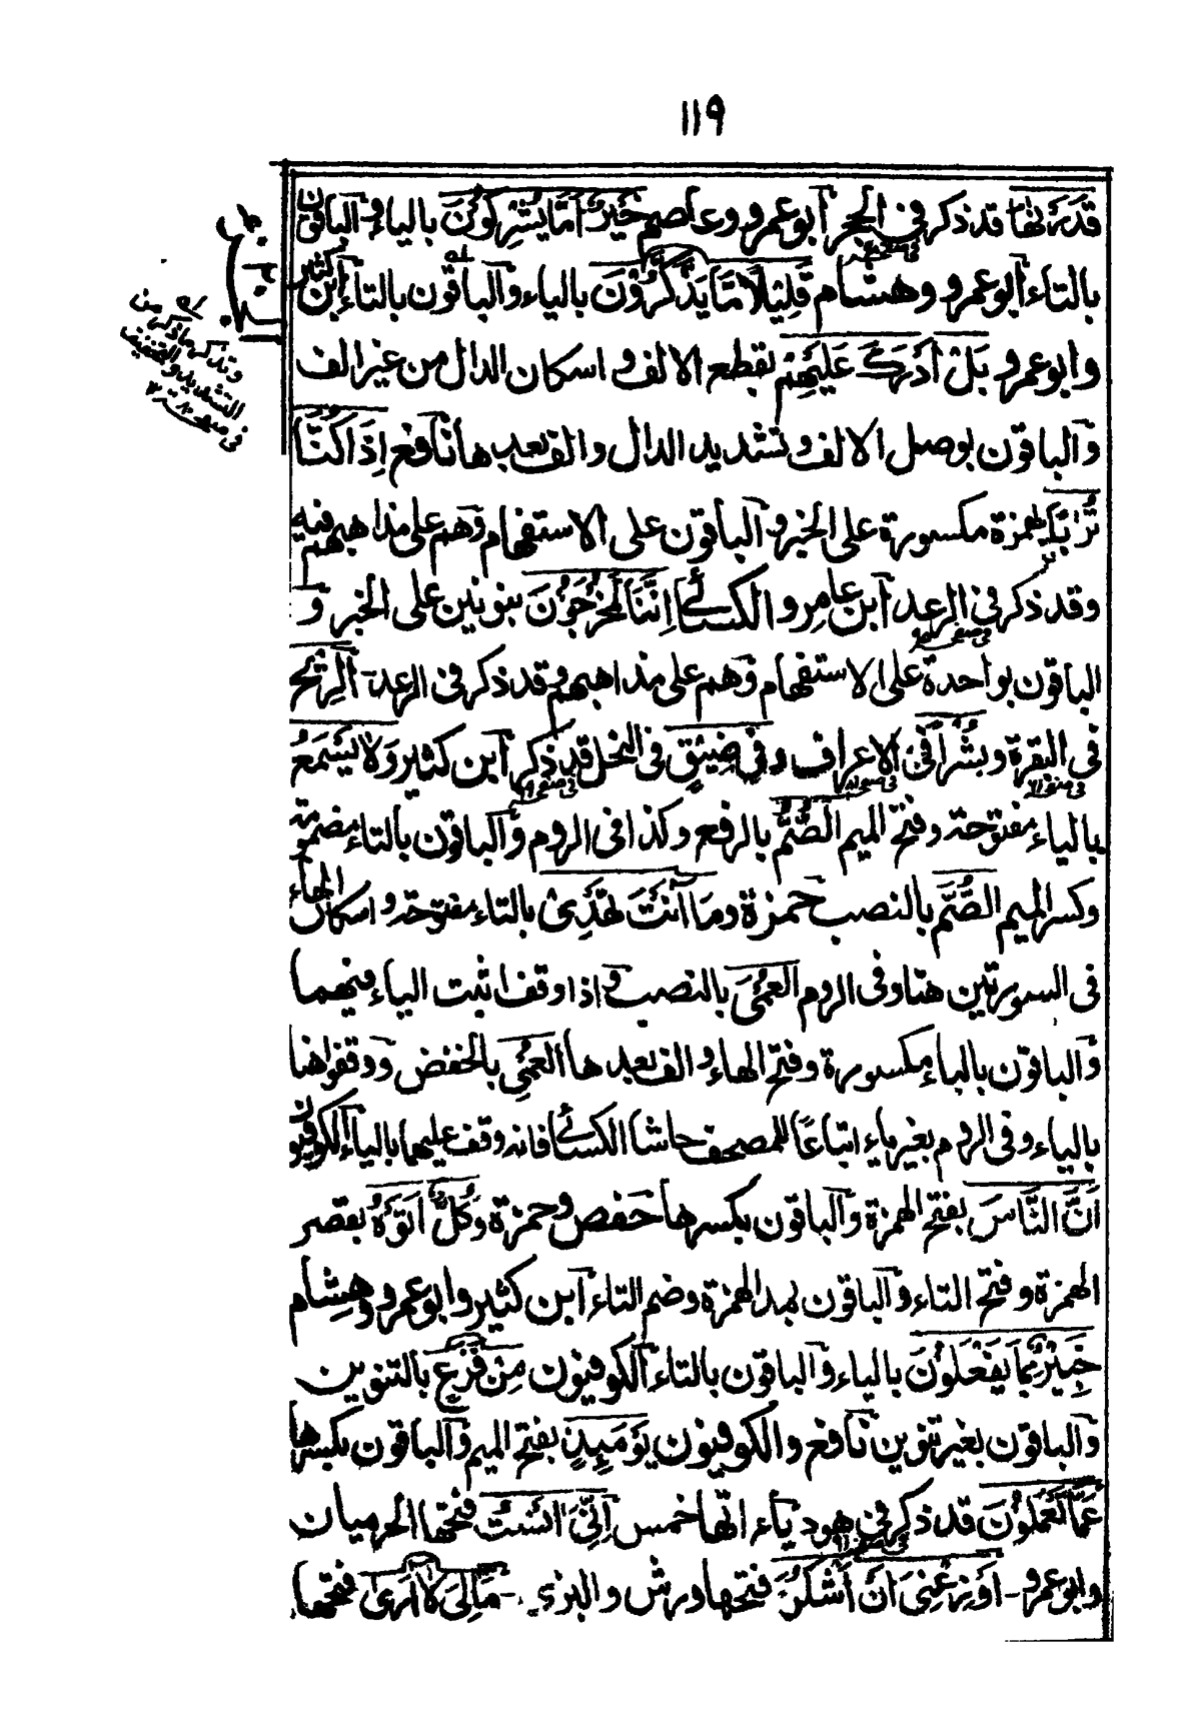 ١١٩
قَدَّرْنٰهَا قد ذكر في الحجر ابوعمرو وعاصم خَيْرٌ اَمَّا يُشْرِكُوْنَ بالياء والباقون
بالتاء ابوعمرو وهشام قَلِيْلًا مَّا يَذَّكَّرُوْنَ بالياء والباقون بالتاء ابن كثير
وابوعمرو بَلْ اَدْرَكَ عَلِمُهُمْ بقطع الالف واسكان الدال من غير الف
والباقون بوصل الالف وتشديد الدال والف بعدها نافع اِذَا كُنَّا
تُرَابًا بهمزة مكسورة على الخبر والباقون على الاستفهام وهم على مذاهبهم فيه
وقد ذكر في الرعد ابن عامر والكسائي اِنَّنَا لَمُخْرَجُوْنَ بنونين على الخبر و
الباقون بواحدة على الاستفهام وهم على مذاهبهم وقد ذكر في الرعد اَلرِّيْحَ
في البقرة وبُشْرًا في الاعراف وفي ضَيْقٍ في النحل قد ذكر ابن كثير وَلَا يَسْمَعُ
بالياء مفتوحة وفتح الميم الصُّمُّ بالرفع وكذا في الروم والباقون بالتاء مضمومة
وكسر الميم الصُّمَّ بالنصب حمزة وَمَا اَنْتَ تَهْدِىْ بالتاء مفتوحة واسكان الهاء
في السورتين هنا وفي الروم العُمْىَ بالنصب واذا وقف اثبت الياء فيهما
والباقون بالباء مكسورة وفتح الهاء والف بعدها العُمْىِ بالخفض ووقفوا هنا
بالياء وفي الروم بغير ياء اتباعًا للمصحف حاشا الكسائي فانه وقف عليهما بالياء الكوفيون
اَنَّ النَّاسَ بفتح الهمزة والباقون بكسرها حفص وحمزة وَكُلٌّ اَتَوْهُ بقصر
الهمزة وفتح التاء والباقون بمد الهمزة وضم التاء ابن كثير وابوعمرو وهشام
خَبِيْرٌ بِمَا يَفْعَلُوْنَ بالياء والباقون بالتاء الكوفيون مِنْ فَزَعٍ بالتنوين
والباقون بغير تنوين نافع والكوفيون يَوْمَئِذٍ بفتح الميم والباقون بكسرها
عَمَّا تَعْمَلُوْنَ قد ذكر في هود ياء اتها خمس اِنِّىَ اٰنَسْتُ فتحها الحرميان
وابوعمرو - اَوْزِعْنِىَ اَنْ اَشْكُرَ فتحها ورش والبزي - مَالِىَ لَا اَرَى فتحها
وتذكر ماذكر من
التشديد والتخفيف